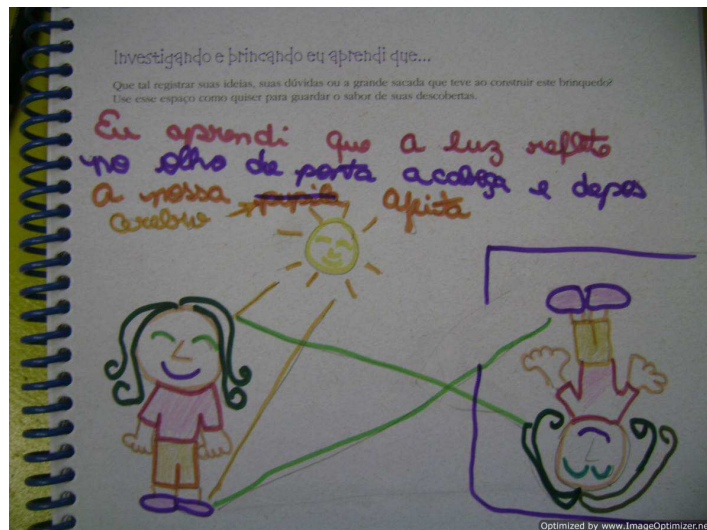 Investigando e brincando eu aprendi que...
Que tal registrar suas ideias, suas dúvidas ou a grande sacada que teve ao construir este brinquedo?
Use esse espaço como quiser para guardar o sabor de suas descobertas.
Eu aprendi que a luz reflete
no olho de ponta acabeça e depos
a nossa pupila ajeita
cerebro
Optimized by www.ImageOptimizer.net